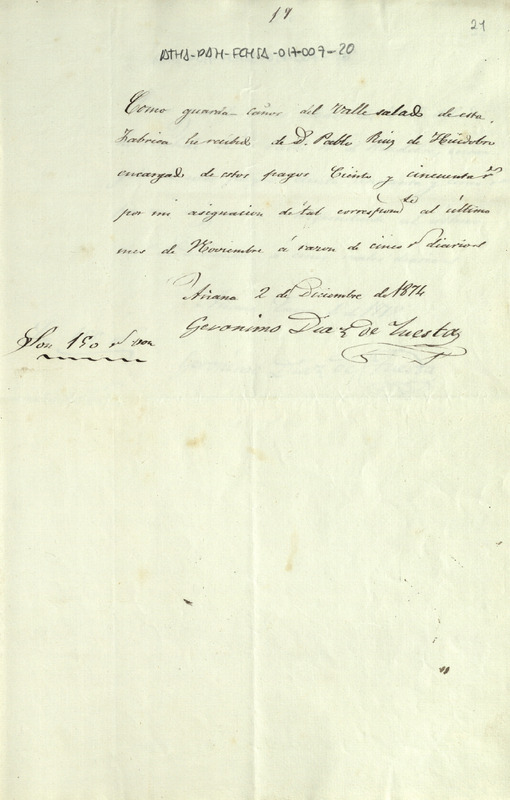 19
21
ATHA-DAH-FCMSA-017-009-20
Como guarda-caños del Valle salado de esta
Fabrica he recibido de D. Pablo Ruiz de Huidobro
encargado de estos pagos Ciento y cincuenta rs
por mi asignacion de tal correspondte al último
mes de Noviembre á razon de cinco rs diarios
Añana 2 de Diciembre de 1874
Geronimo Diaz de Tuesta
Son 150 rs von